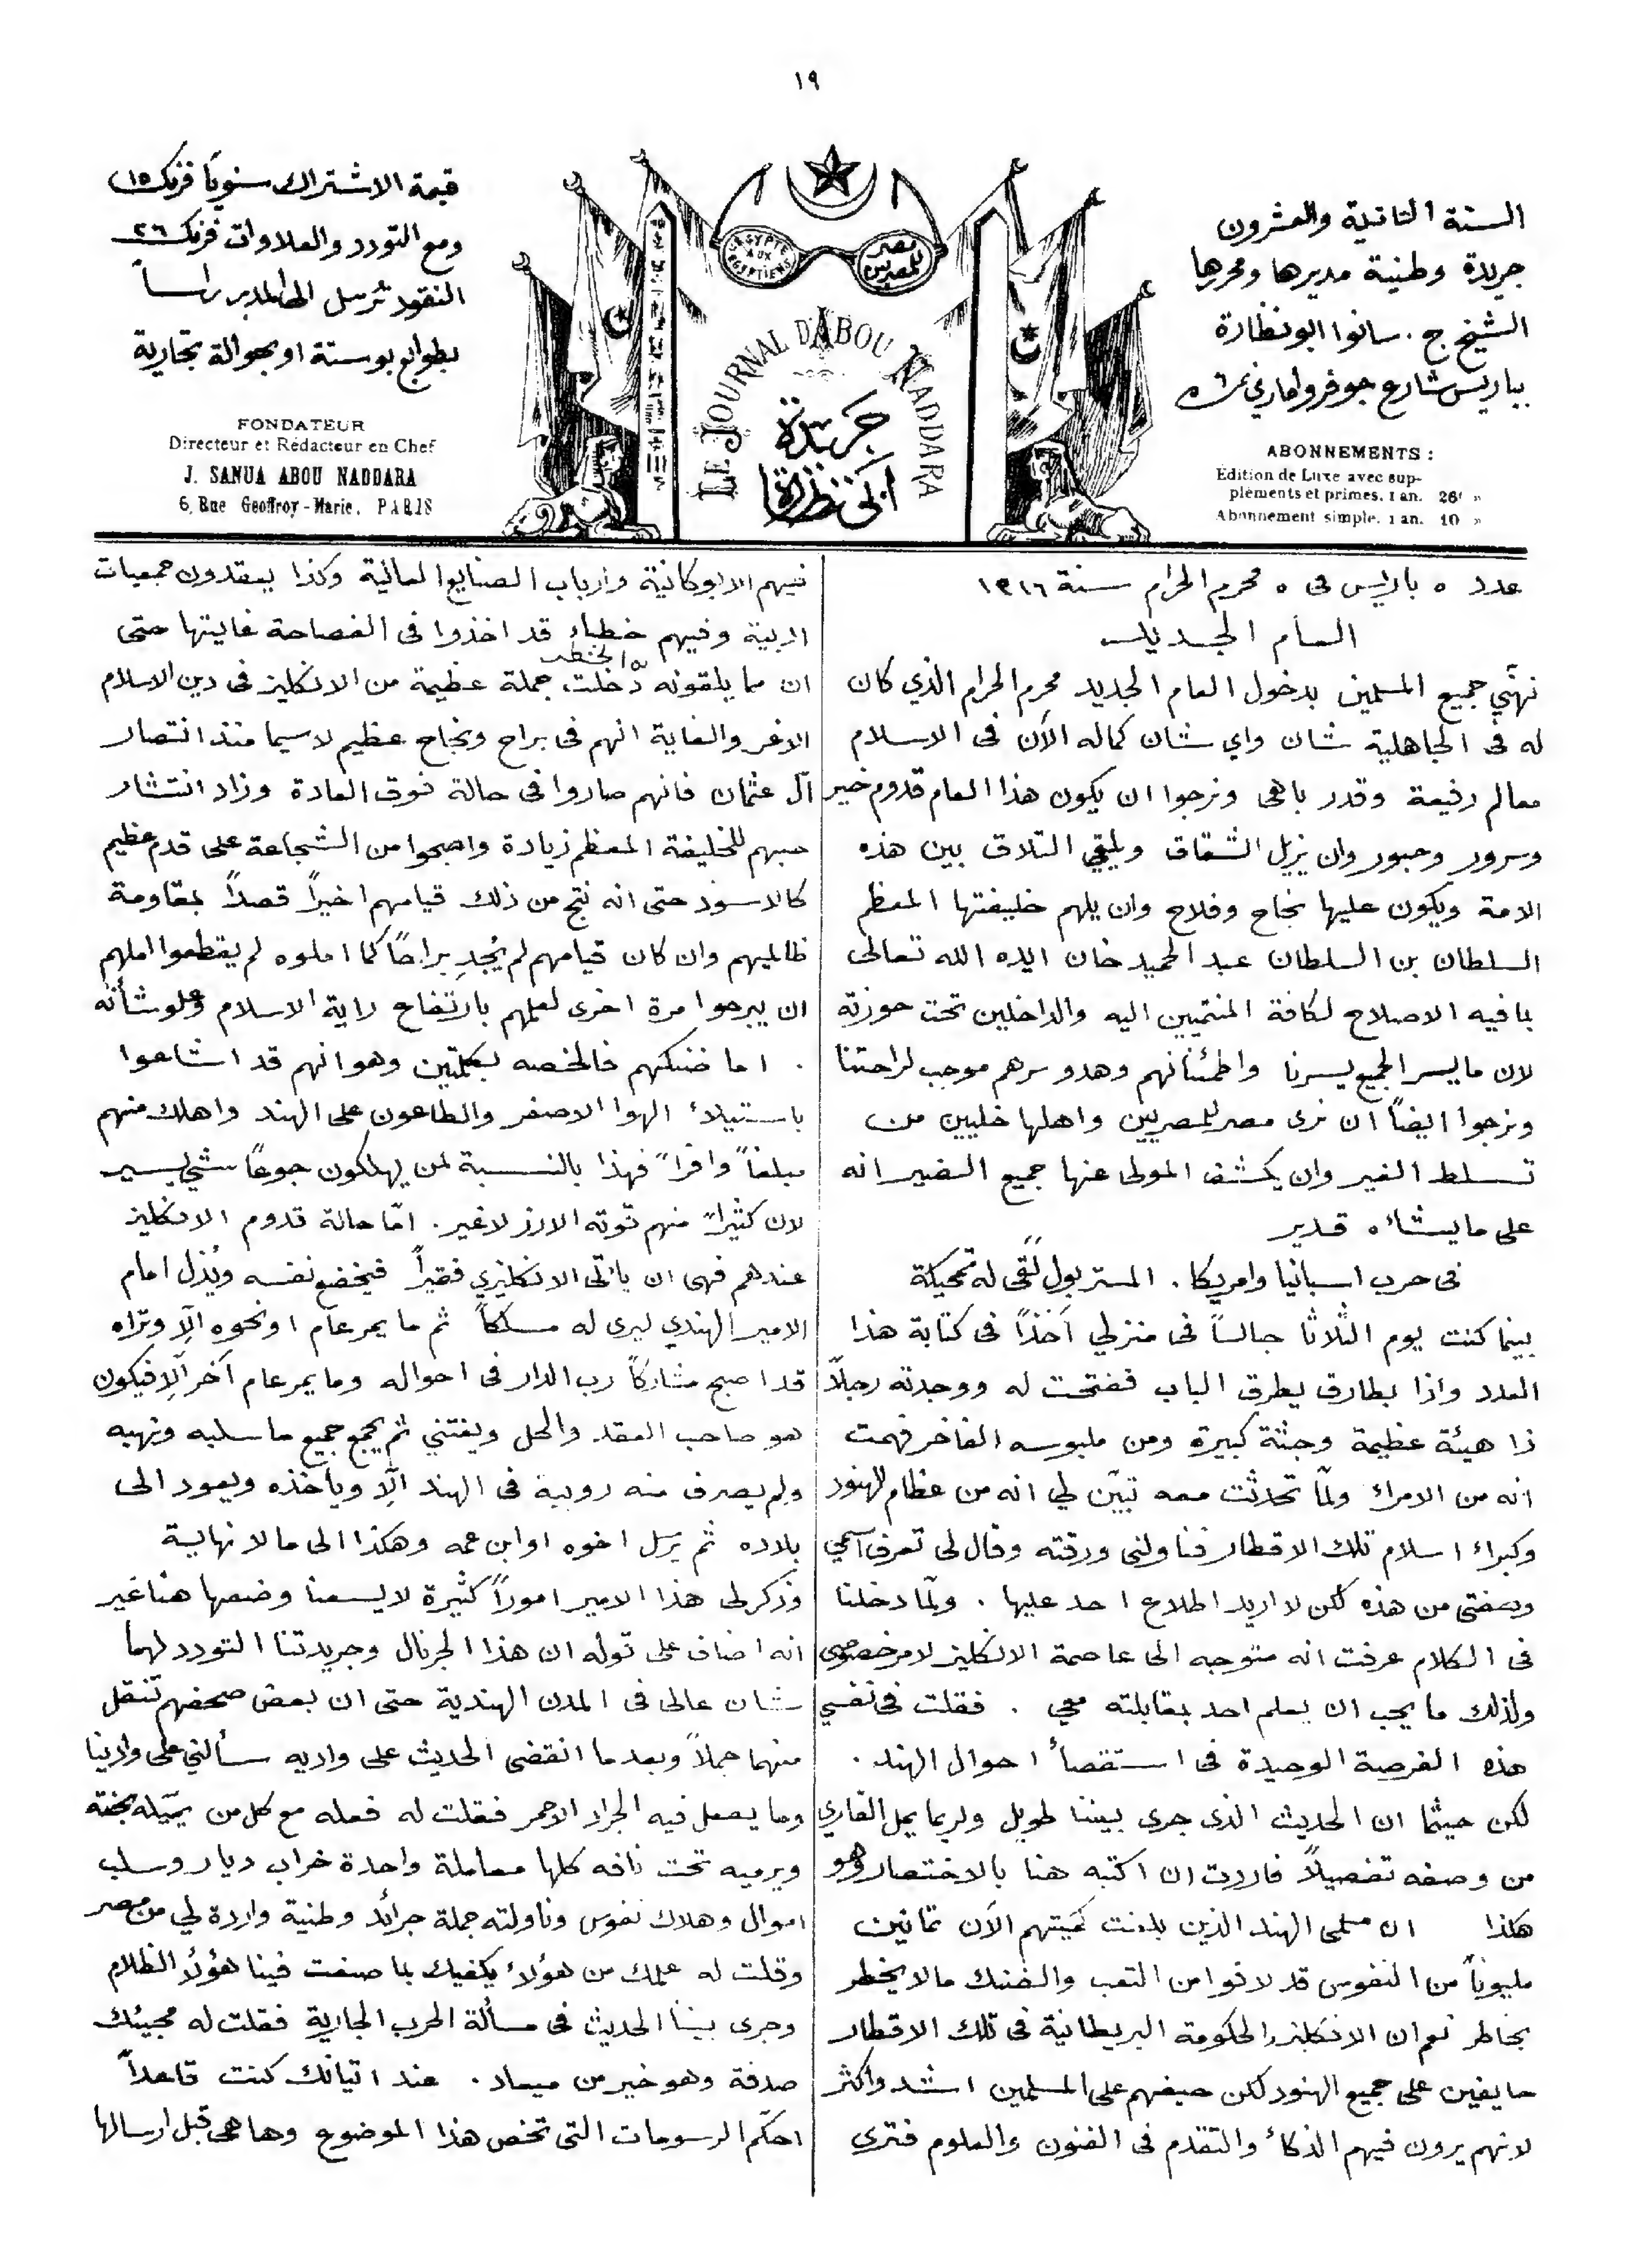 ١٩
السنة الثانية والعشرون
جريدة وطنية مديرها ومحررها
الشيخ ج. سانوا ابو نظارة
بباريس شارع جوفروا ماري
ABONNEMENTS :
Edition de Luxe avec sup-
pléments et primes, 1 an. 26f »
Abonnement simple, 1 an. 10 »
L'EGYPTE AUX EGYPTIENS
مصر للمصريين
LE JOURNAL D'ABOU NADDARA
جريدة
ابي نظارة
قيمة الاشتراك سنوياً فرنك ١٥
ومع التودد والعلاوات فرنك ٢٦
النقود ترسل الى المدير راساً
بطوابع بوستة او بحوالة تجارية
FONDATEUR
Directeur et Rédacteur en Chef
J. SANUA ABOU NADDARA
6, Rue Geoffroy-Marie, PARIS
عدد ٥ باريس فى ٥ محرم الحرام سنة ١٣١٦
العام الجديد
نهني جميع المسلمين بدخول العام الجديد محرم الحرام الذي كان
له فى الجاهلية شان واي شان كما له الآن فى الاسلام
معالم رفيعة وقدر باهى ونرجوا ان يكون هذا العام قدوم خير
وسرور وحبور وان يزيل الشقاق ويلقي التلاق بين هذه
الامة ويكون عليها نجاح وفلاح وان يلهم خليفتها المعظم
السلطان بن السلطان عبد الحميد خان ايده الله تعالى
بما فيه الاصلاح لكافة المنتميين اليه والداخلين تحت حوزته
لان ما يسر الجميع يسرنا واطمئنانهم وهدو سرهم موجب لراحتنا
ونرجوا ايضاً ان نرى مصر للمصريين واهلها خليين من
تسلط الغير وان يكشف المولى عنها جميع الضير انه
على ما يشاء قدير
فى حرب اسبانيا وامريكا. المستر بول لقى له تمحيكة
بينما كنت يوم الثلاثا جالساً فى منزلي آخذاً فى كتابة هذا
العدد واذا بطارق يطرق الباب ففتحت له ووجدته رجلاً
ذا هيئة عظيمة وجثة كبيرة ومن ملبوسه الفاخر فهمت
انه من الامراء ولمّا تحدثت معه تبيّن لي انه من عظام الهنود
وكبراء اسلام تلك الاقطار فناولنى ورقته وقال لى تعرف اسمي
وصفتى من هذه لكن لا اريد اطلاع احد عليها . ولمّا دخلنا
فى الكلام عرفت انه متوجه الى عاصمة الانكليز لامر خصوصي
ولذلك ما يجب ان يعلم احد بمقابلته معي . فقلت فى نفسي
هذه الفرصة الوحيدة فى استقصاأ احوال الهند .
لكن حيثما ان الحديث الذى جرى بيننا طويل ولربما يمل القاري
من وصفه تفصيلاً فاردت ان اكتبه هنا بالاختصار وهو
هكذا ان مسلمى الهند الذين بلغت كميتهم الآن ثمانين
مليوناً من النفوس قد لاقوا من التعب والضنك مالا يخطر
بخاطر نعم ان الانكليز والحكومة البريطانية فى تلك الاقطار
حايفين على جميع الهنود لكن حيفهم على المسلمين اشد واكثر
لانهم يرون فيهم الذكاء والتقدم فى الفنون والعلوم فترى
فيهم الابوكاتية وارباب الصنايع العالية وكذا يعقدون جمعيات
ادبية وفيهم خطباء قد اخذوا فى الفصاحة غايتها حتى
ان مما يلقونه من الخطب دخلت جملة عظيمة من الانكليز فى دين الاسلام
الاغر والغاية انهم فى براح ونجاح عظيم لا سيما منذ انتصار
آل عثمان فانهم صاروا فى حالة فوق العادة وزاد انتشار
حبهم للخليفة المعظم زيادة واصبحوا من الشجاعة على قدم عظيم
كالاسود حتى انه نتج من ذلك قيامهم اخيراً قصداً بمقاومة
ظالميهم وان كان قيامهم لم يُجدِ براحاً كما املوه لم يقطعوا املهم
ان يبرحوا مرة اخرى لعلمهم بارتفاع راية الاسلام وعلو شأنه
. اما ضنكهم فالخصه بكلمتين وهو انهم قد اشاعوا
باستيلاء الهوا الاصفر والطاعون على الهند واهلك منهم
مبلغاً وافراً فهذا بالنسبة لمن يهلكون جوعاً شئ يسير
لان كثيراً منهم قوته الارز لا غير. امّا حالة قدوم الانكليز
عندهم فهى ان ياتى الانكليزي فقيراً فيخضع نفسه ويُذل امام
الامير الهندي ليرى له مسلكاً ثم ما يمر عام او نحوه الّا وتراه
قد اصبح مشاركاً رب الدار فى احواله وما يمر عام آخر الّا فيكون
هو صاحب العقد والحل ويغتني ثم يجمع جميع ما سلبه ونهبه
ولم يصرف منه روبية فى الهند الّا ويأخذه ويعود الى
بلاده ثم يرسل اخوه او ابن عمه وهكذا الى ما لا نهاية
وذكر لى هذا الامير اموراً كثيرة لا يسعنا وضعها هنا غير
انه اضاف على قوله ان هذا الجرنال وجريدتنا التودد لهما
شان عالى فى المدن الهندية حتى ان بعض صحفهم تنقل
منهما جملاً وبعد ما انقضى الحديث على واديه سألني على وادينا
وما يفعل فيه الجراد الاحمر فقلت له فعله مع كل من
ويرميه تحت نافه كلها معاملة واحدة خراب ديار وسلب
اموال وهلاك نفوس وناولته جملة جرائد وطنية واردة لي من مصر
وقلت له علمك من هؤلاء يكفيك بما صنعت فينا هؤلاء الظلام
وجرى بيننا الحديث فى مسألة الحرب الجارية فقلت له مجيئك
صدفة وهو خير من ميعاد . عند اتيانك كنت قاعداً
احكّم الرسومات التى تخص هذا الموضوع وها هى قبل ارسالها